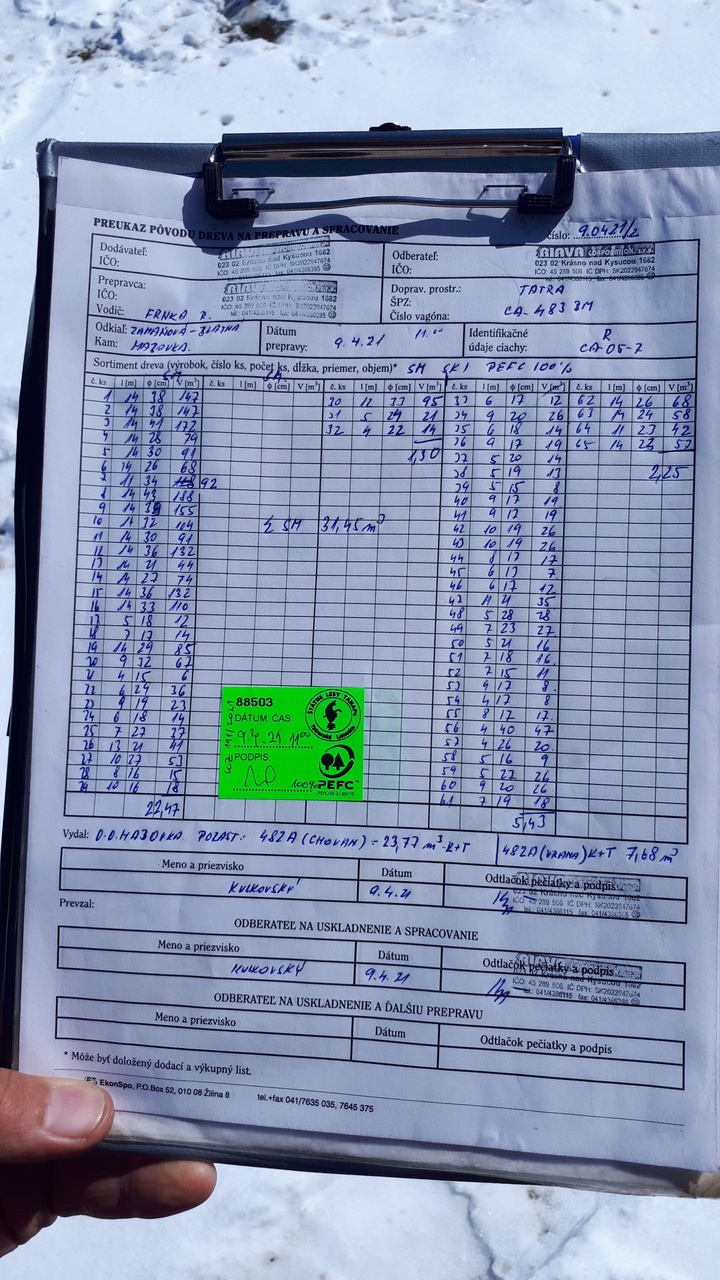 PREUKAZ PÔVODU DREVA NA PREPRAVU A SPRACOVANIE
číslo: 90421/2
Dodávateľ:
IČO:
023 02 Krásno nad Kysucou 1682
IČO: 45 289 506 IČ DPH: SK2022947674
Odberateľ:
IČO:
023 02 Krásno nad Kysucou 1682
IČO: 45 289 506 IČ DPH: SK2022947674
Prepravca:
IČO:
Vodič: FRNKA R.
023 02 Krásno nad Kysucou 1682
IČO: 45 289 506 IČ DPH: SK2022947674
Doprav. prostr.: TATRA
ŠPZ:
Číslo vagóna: CA-483 BM
Odkiaľ: ZAMANOVA-BLATNA
Kam: HAJOVKA
Dátum
prepravy: 9.4.21 11.00
Identifikačné
údaje ciachy: R
CA-05-7
Sortiment dreva (výrobok, číslo ks, počet ks, dĺžka, priemer, objem)* SM SKI PEFC 100%
č. ks l [m] ϕ [cm] V [m³] č. ks l [m] ϕ [cm] V [m³] č. ks l [m] ϕ [cm] V [m³] č. ks l [m] ϕ [cm] V [m³] č. ks l [m] ϕ [cm] V [m³]
1 14 38 147
2 14 38 147
3 14 41 172
4 14 28 79
5 14 30 91
6 14 26 68
7 11 34 92
8 14 43 188
9 14 39 155
10 14 32 104
11 14 30 91
12 14 36 132
13 14 21 44
14 14 27 74
15 14 36 132
16 14 33 110
17 5 18 12
18 7 17 14
19 14 29 85
20 9 32 67
21 4 15 6
22 6 29 36
23 9 19 23
24 6 18 14
25 7 27 37
26 13 21 41
27 10 27 53
28 8 16 15
29 10 16 18
22,47
30 12 33 95
31 5 24 21
32 4 22 14
1,30
Σ SM 31,45 m³
33 6 17 12
34 9 20 26
35 6 18 14
36 9 17 19
37 5 20 14
38 5 19 13
39 5 15 8
40 9 17 19
41 9 17 19
42 10 19 26
43 10 19 26
44 8 17 17
45 6 13 7
46 6 17 12
47 11 21 35
48 5 28 28
49 7 23 27
50 5 21 16
51 7 18 16
52 7 15 11
53 4 17 8
54 4 17 8
55 8 17 17
56 4 40 47
57 4 26 20
58 5 16 9
59 5 27 26
60 9 20 26
61 7 19 18
5,43
62 14 26 68
63 14 24 58
64 11 23 42
65 14 23 57
2,25
88503
DÁTUM ČAS
9.4.21 11.00
PODPIS
100%
ŠTÁTNE LESY TANAPu
Tatranská Lomnica
PEFC
Vydal: O.O. HAJOVKA POZAST: 482A (CHOVAN) - 23,77 m³ K+T
482A (VRANA) K+T 7,68 m³
Meno a priezvisko Dátum Odtlačok pečiatky a podpis
KULKOVSKÝ 9.4.21
IČO: 45 289 506 IČ DPH: SK2022947674
tel.: 041/4386115 fax: 041/4386395
Prevzal:
ODBERATEĽ NA USKLADNENIE A SPRACOVANIE
Meno a priezvisko Dátum Odtlačok pečiatky a podpis
KULKOVSKÝ 9.4.21
IČO: 45 289 506 IČ DPH: SK2022947674
tel.: 041/4386115 fax: 041/4386395
ODBERATEĽ NA USKLADNENIE A ĎALŠIU PREPRAVU
Meno a priezvisko Dátum Odtlačok pečiatky a podpis
* Môže byť doložený dodací a výkupný list.
EkonSpo, P.O.Box 52, 010 08 Žilina 8 tel.+fax 041/7635 035, 7645 375